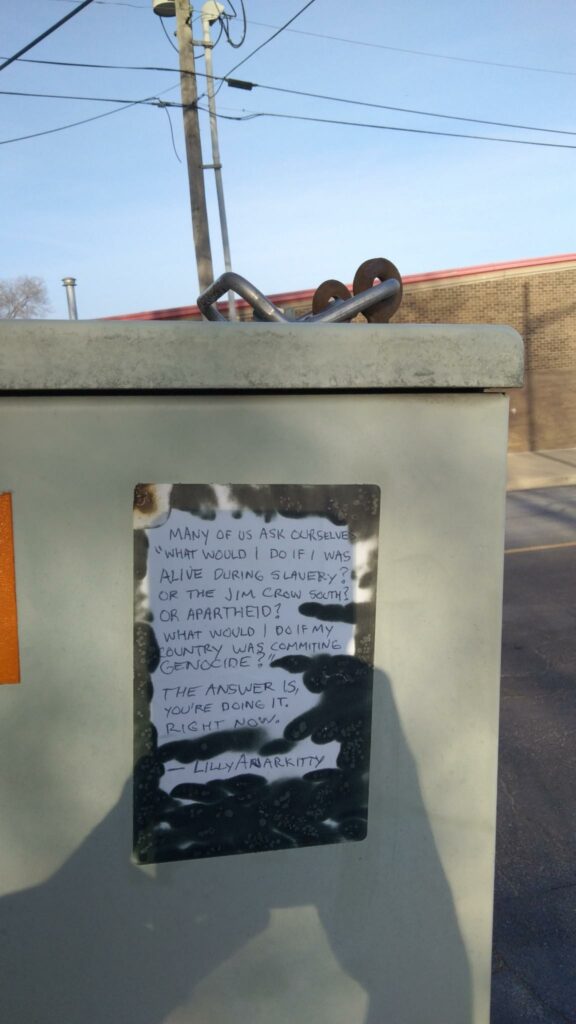 MANY OF US ASK OURSELVES
"WHAT WOULD I DO IF I WAS
ALIVE DURING SLAVERY?
OR THE JIM CROW SOUTH?
OR APARTHEID?
WHAT WOULD I DO IF MY
COUNTRY WAS COMMITING
GENOCIDE?"
THE ANSWER IS,
YOU'RE DOING IT.
RIGHT NOW.
— LILLYANARKITTY